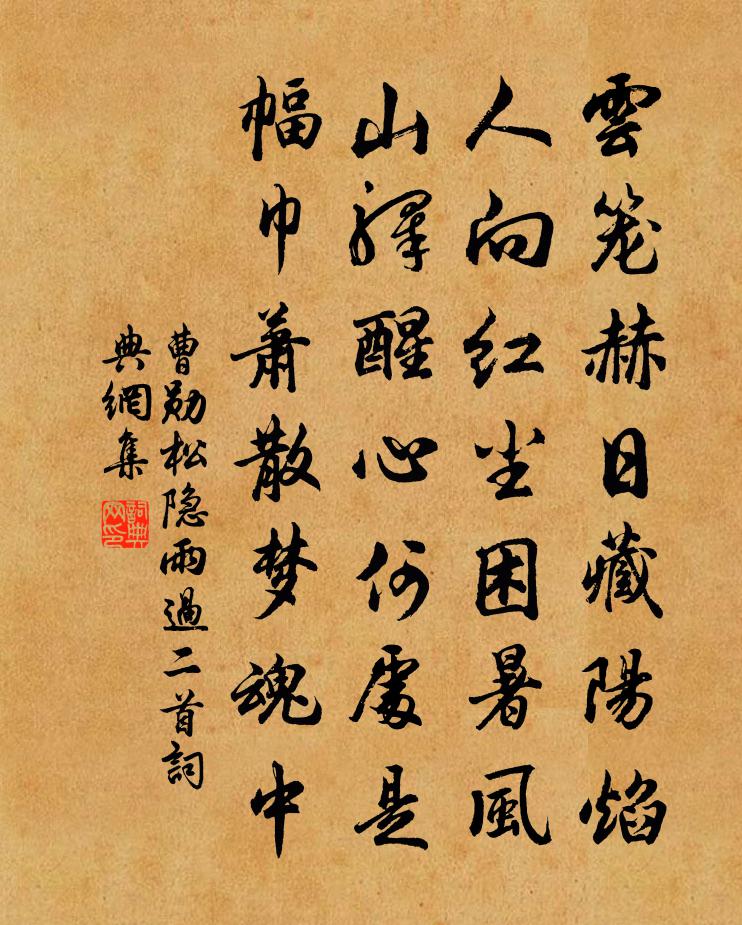 雲笼赫日藏陽焰
人向红尘困暑風
山驛醒心何處是
幅巾萧散梦魂中
曹勋松隐雨過二首詞
典網集
詞典
网印